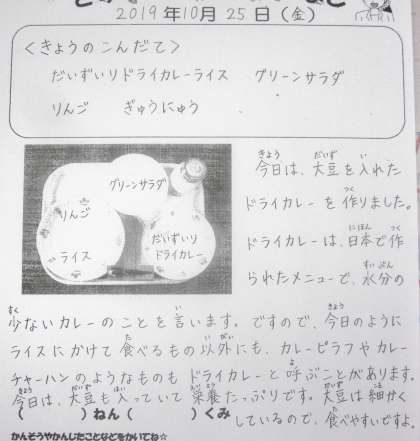 2019年10月25日(金)
<きょうのこんだて>
だいずいりドライカレーライス　グリーンサラダ
りんご　ぎゅうにゅう
グリーンサラダ
りんご
ライス
だいずいり
ドライカレー
今日は、大豆を入れた
ドライカレーを作りました。
ドライカレーは、日本で作
られたメニューで、水分の
少ないカレーのことを言います。ですので、今日のように
ライスにかけて食べるもの以外にも、カレーピラフやカレー
チャーハンのようなものもドライカレーと呼ぶことがあります。
今日は、大豆も入っていて栄養たっぷりです。大豆は細かく
しているので、食べやすいですよ
(　　)ねん(　　)くみ
かんそうやかんしたことなどをかいてね☆